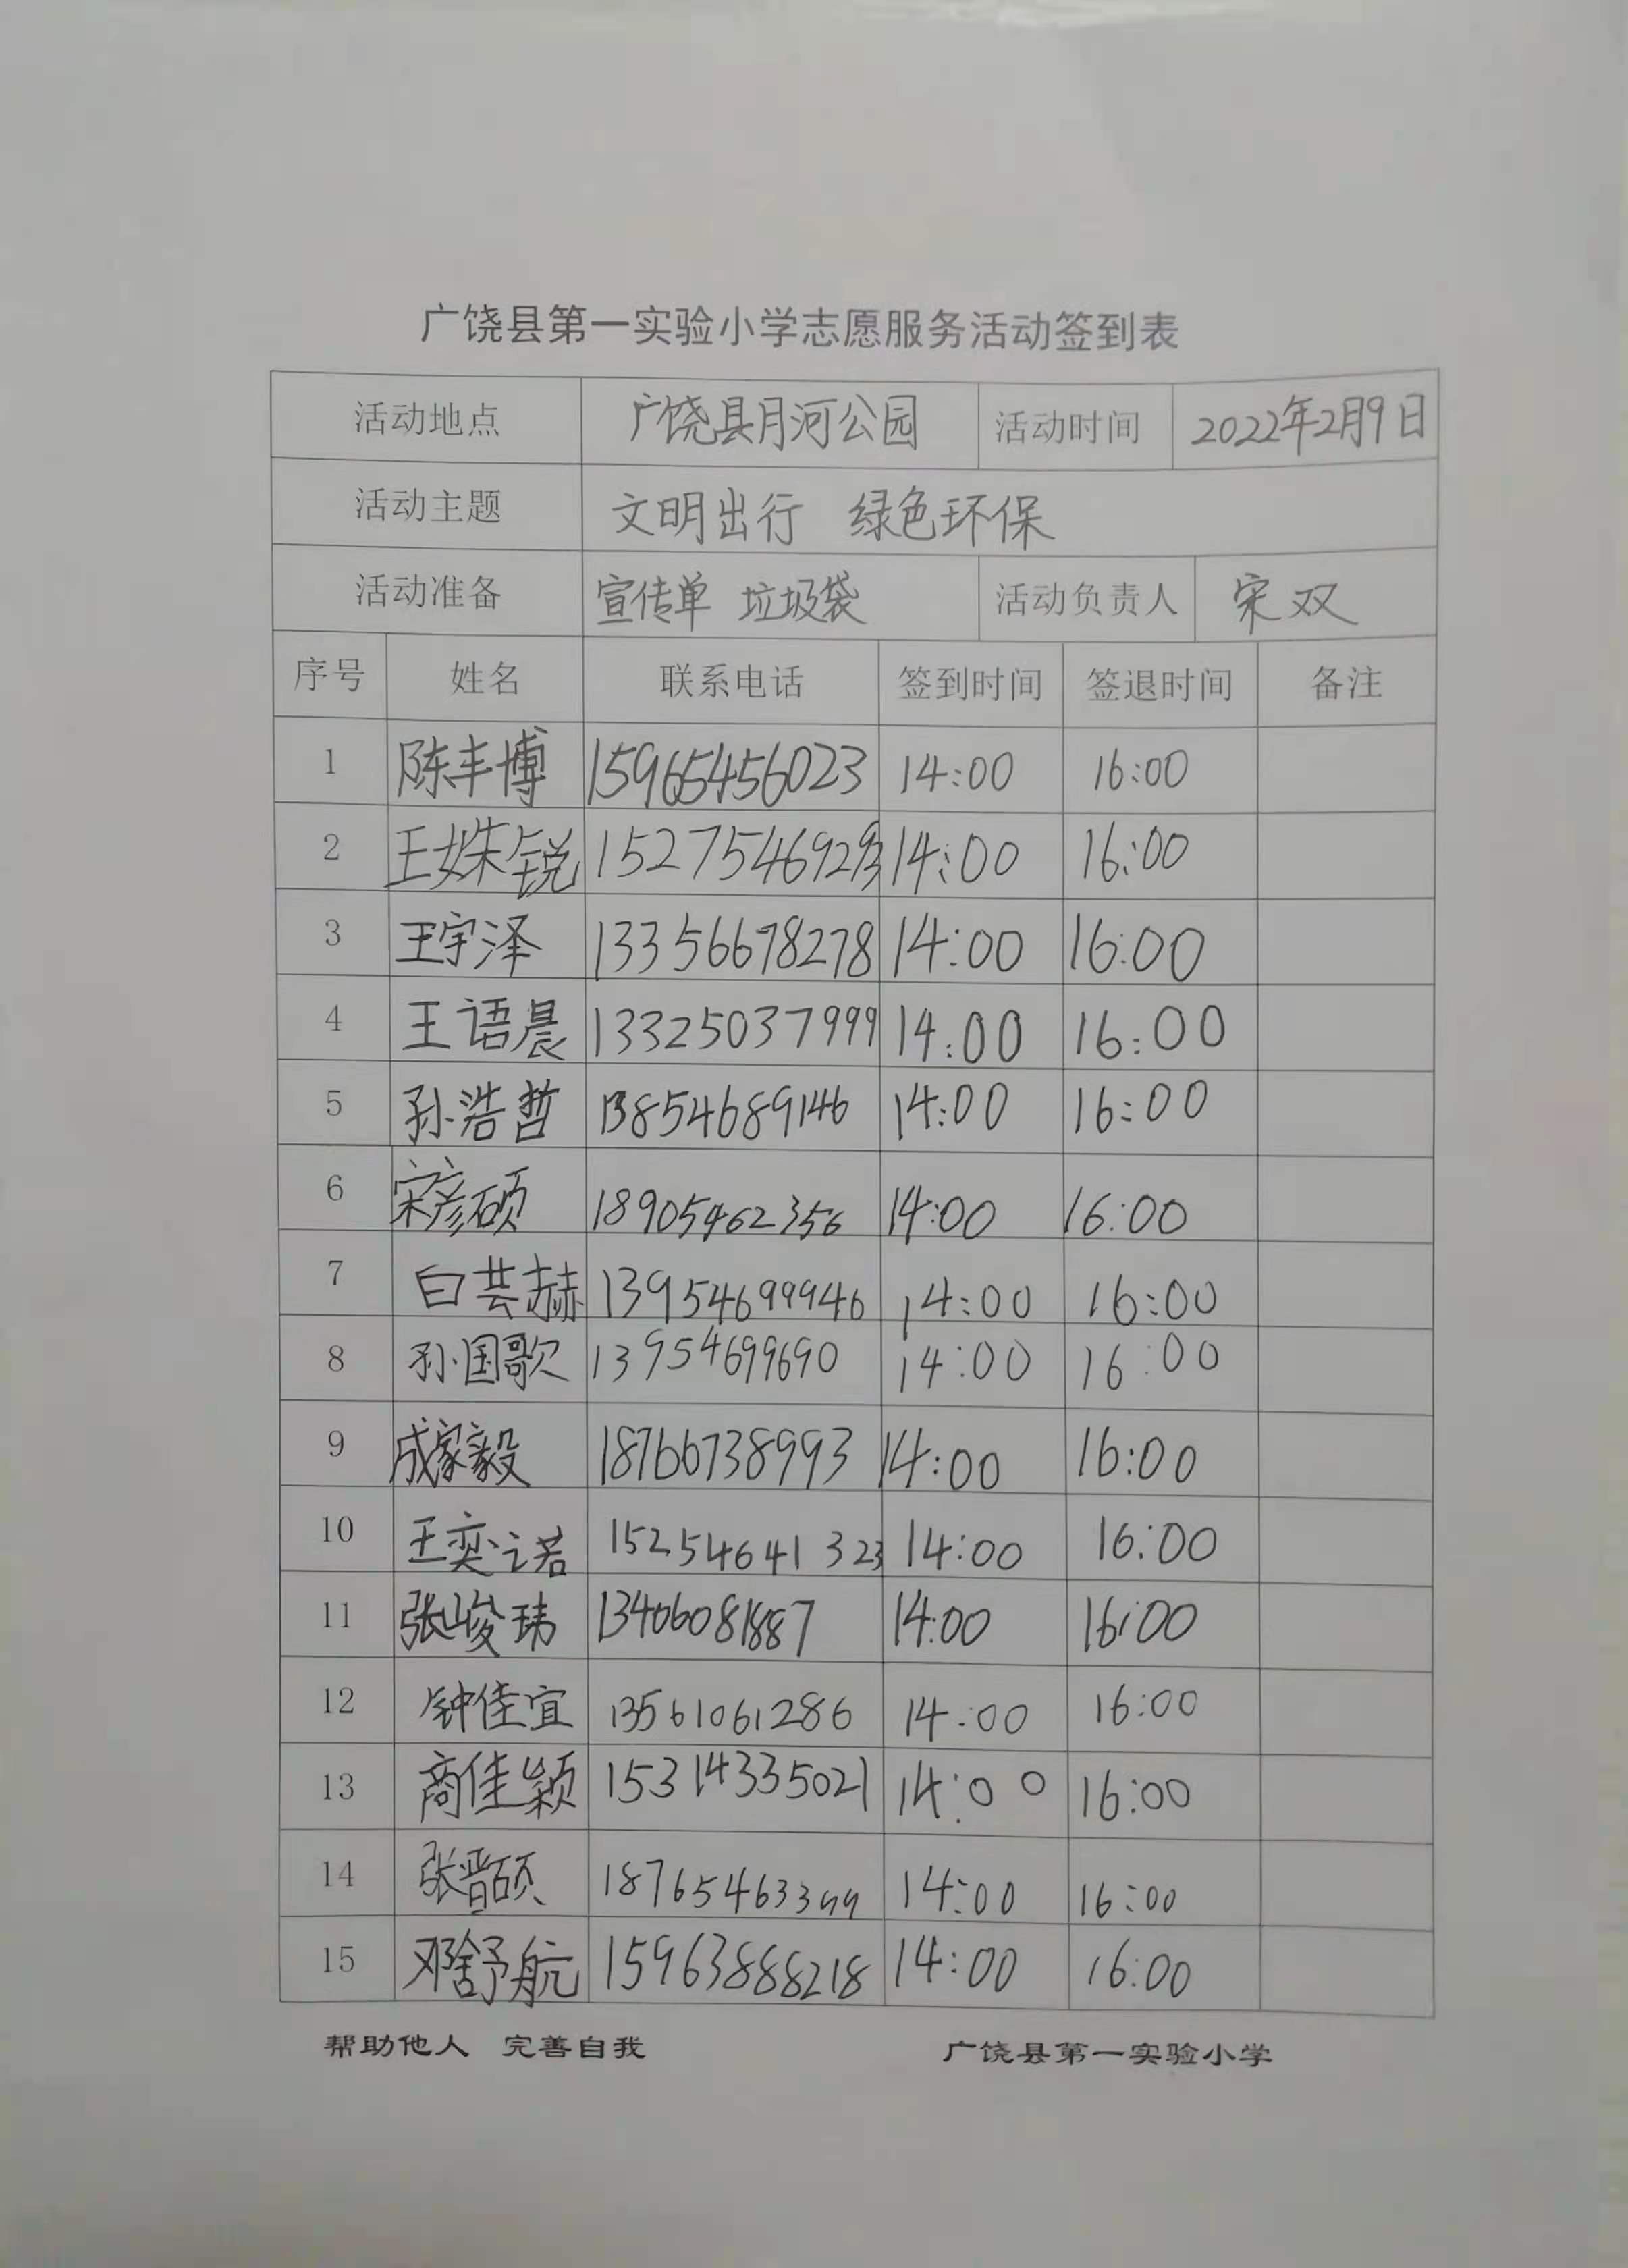 广饶县第一实验小学志愿服务活动签到表
活动地点 广饶县月河公园 活动时间 2022年2月9日
活动主题 文明出行 绿色环保
活动准备 宣传单 垃圾袋 活动负责人 宋双
序号 姓名 联系电话 签到时间 签退时间 备注
1 陈丰博 15965456023 14:00 16:00
2 王姝锐 14:00 16:00
3 王宇泽 13356678278 14:00 16:00
4 王语晨 13325037999 14:00 16:00
5 孙浩哲 13854689146 14:00 16:00
6 宋彦硕 18905462356 14:00 16:00
7 白芸赫 13954699946 14:00 16:00
8 孙国歌 13954699690 14:00 16:00
9 成家毅 18766738993 14:00 16:00
10 王奕诺 15254641323 14:00 16:00
11 张峻玮 13406081887 14:00 16:00
12 钟佳宜 13561061286 14:00 16:00
13 商佳颖 15314335021 14:00 16:00
14 张晋硕 14:00 16:00
15 邓舒航 15963888218 14:00 16:00
帮助他人 完善自我 广饶县第一实验小学